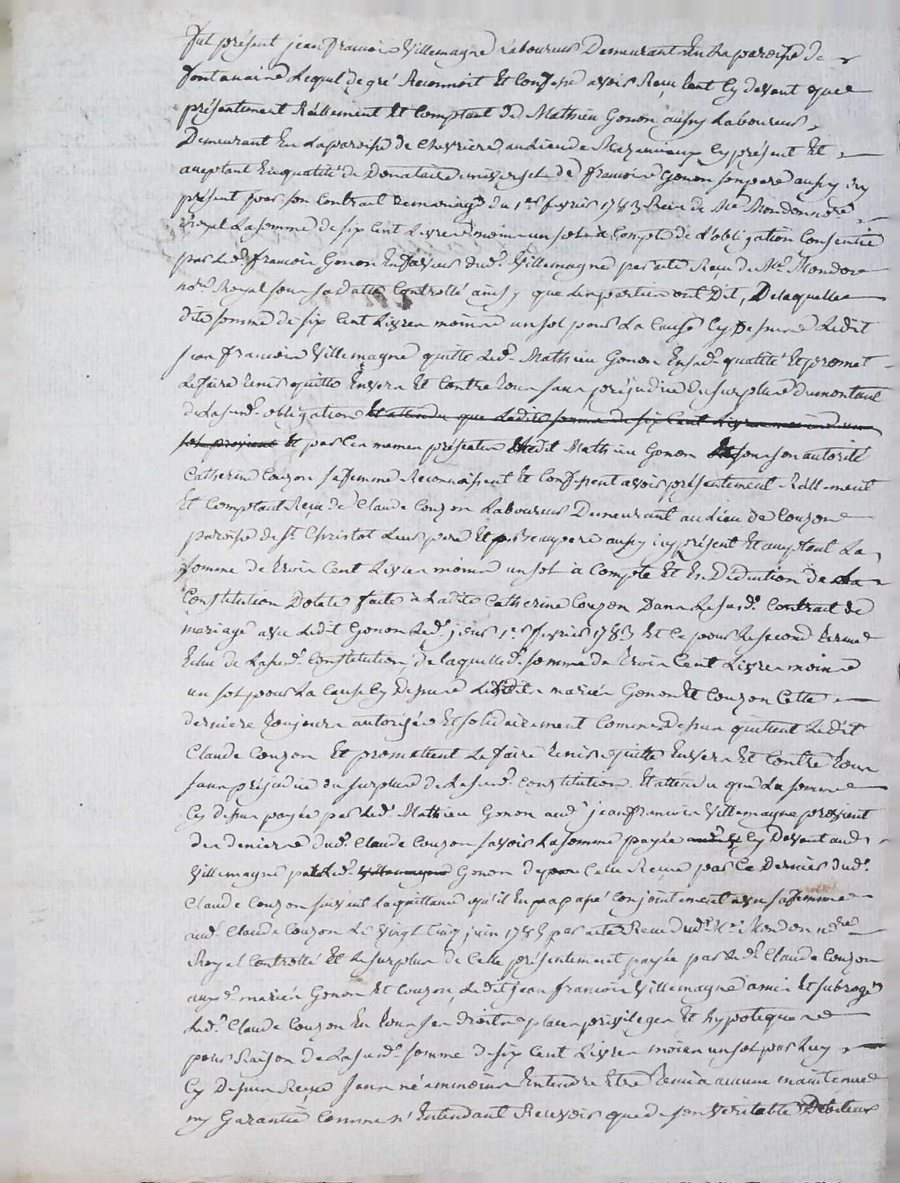 fut présent jean francois Villemagne laboureur Demeurant En la paroisse de
fontanaire Lequel de gré Reconnoit Et Confesse avoir Reçu tant Cy devant que
présentement Réellement Et Comptant de Mathieu Gonon aussy Laboureur
Demeurant En La paroisse de Chevriere au Lieu de Cy présent Et
acceptant En qualité de Donataire universel de francois Gonon son pere aussy icy
présent par son Contract de mariage du 1er fevrier 1783 Reçu de Me Mondon nore
Royal La somme de six Cent Livres moins un sol à Compte de L'obligation Consentie
par Led. francois Gonon En faveur dud. Villemagne par acte Reçu du Me Mondon
nore Royal sous sa datte Controllé ainsy que Les parties ont Dit, De laquelle
dite somme de six Cent Livres moins un sol pour La Cause Cy Dessus Ledit
jean francois Villemagne quitte Led. Mathieu Gonon En sad. qualité Et promet
Le faire tenir quitte Envers Et Contre tous sans préjudice du surplus du montant
de Lasusd. obligation Et attendu que Ladite somme de six Cent Livres moins un
sol provient Et par Ces memes présentes Ledit Mathieu Gonon Et sous son autorité
Catherine Couzon sa femme Reconnoissent Et Confessent avoir présentement Réellement
Et Comptant Reçu de Claude Couzon Laboureur Demeurant au Lieu de Couzon
paroisse de St Christot Leur pere Et Beaupere aussy icy présent Et acceptant La
somme de trois Cent Livres moins un sol à Compte Et En Déduction de La
Constitution Dotale faite à Ladite Catherine Couzon Dans Le susd. Contrat de
mariage avec Ledit Gonon Led. jour 1er fevrier 1783 Et Ce pour Le second terme
Echu de Lasusd. Constitution, de laquelle d. somme de trois Cent Livres moins
un sol pour La Cause Cy Dessus Lesdits mariés Gonon Et Couzon Cette
derniere toujours autorisée Et solidairement Comme Dessus quittent Ledit
Claude Couzon Et promettent Le faire tenir quitte Envers Et Contre tous
sans préjudice du surplus de Lasusd. Constitution. Et attendu que La somme
Cy dessus payée par Led. Mathieu Gonon aud. jean francois Villemagne provient
des deniers dud. Claude Couzon savoir La somme payée Cy Devant aud.
Villemagne par Led. Villemagne Gonon de Celle Reçue par Ce Dernier dud.
Claude Couzon suivant La quittance qu'il En a passé Conjointement avec sa femme
aud. Claude Couzon Le vingt Cinq juin par acte Reçu dud. Me Mondon nore
Royal Controllé Et Le surplus de Celle présentement payée par Led. Claude Couzon
auxd. mariés Gonon Et Couzon, Ledit jean francois Villemagne a mis Et subrogé
Led. Claude Couzon En tous ses droits places privileges Et hypoteques
pour Raison de Lasusd. somme de six Cent Livres moins un sol par Luy
Cy Dessus Reçue sans néammoins Entendre Etre tenu à aucune maintenue
ny Garantie Comme n'Entendant Recevoir que de son veritable Debiteur